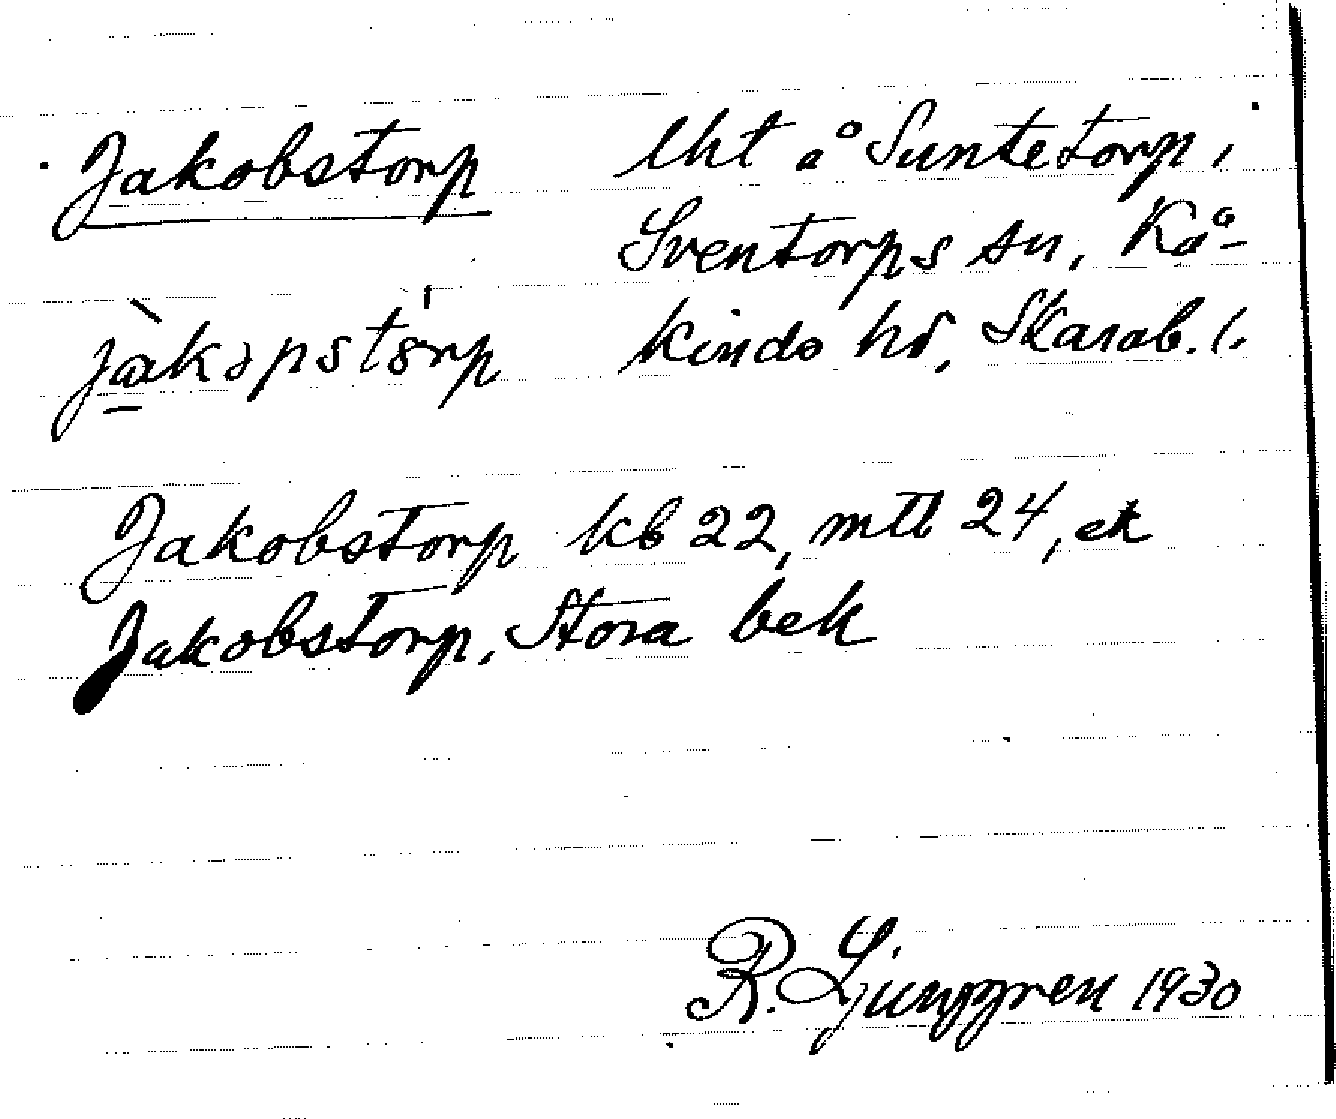 Jakobstorp lht å Suntetorp,
Sventorps sn, Kå-
jàkəpstörp kinds hd, Skarab. l.
Jakobstorp kb 22, mtl 24, ek
Jakobstorp, Stora bek
R. Ljunggren 1930